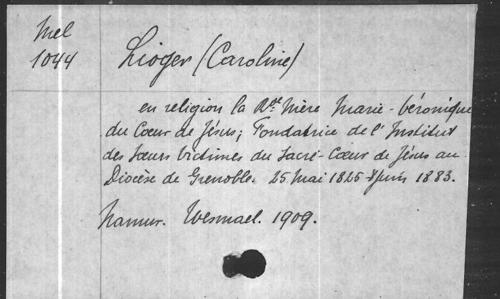 Mel
1044
Lioger (Caroline)
en religion la Rde Mère Marie-Véronique
du Cœur de Jésus; Fondatrice de l'Institut
des Sœurs Victimes du Sacré-Cœur de Jésus au
Diocèse de Grenoble. 25 Mai 1825-8 Juin 1883.
Namur. Wesmael. 1909.